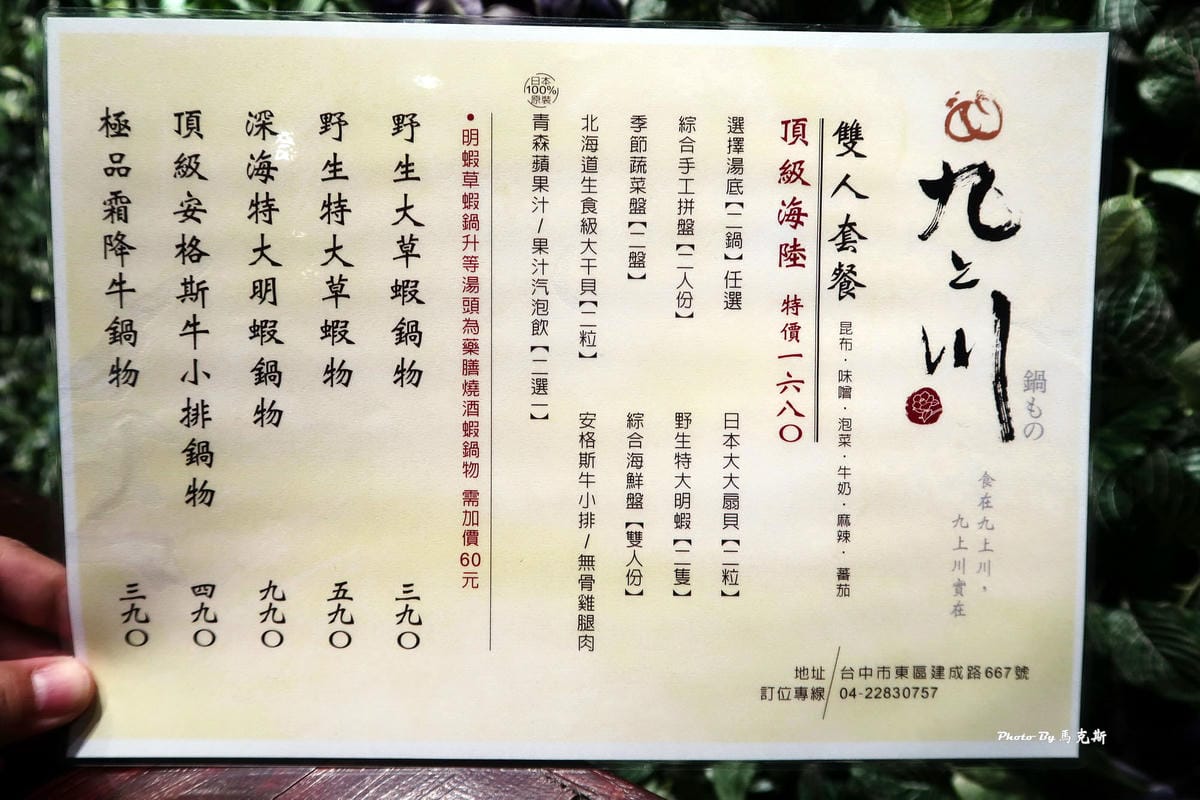 九上川
鍋もの
食在九上川，
九上川實在
雙人套餐 昆布·味噌·泡菜·牛奶·麻辣·蕃茄
頂級海陸 特價一六八〇
選擇湯底【二鍋】任選
日本大大扇貝【二粒】
綜合手工拼盤【二人份】
野生特大明蝦【二隻】
季節蔬菜盤【二盤】
綜合海鮮盤【雙人份】
北海道生食級大干貝【二粒】
安格斯牛小排/無骨雞腿肉
日本
100%
原裝
青森蘋果汁/果汁汽泡飲【二選一】
•明蝦草蝦鍋升等湯頭為藥膳燒酒蝦鍋物 需加價60元
野生大草蝦鍋物 三九〇
野生特大草蝦物 五九〇
深海特大明蝦鍋物 九九〇
頂級安格斯牛小排鍋物 四九〇
極品霜降牛鍋物 三九〇
地址/台中市東區建成路667號
訂位專線/04-22830757
Photo By 馬克斯